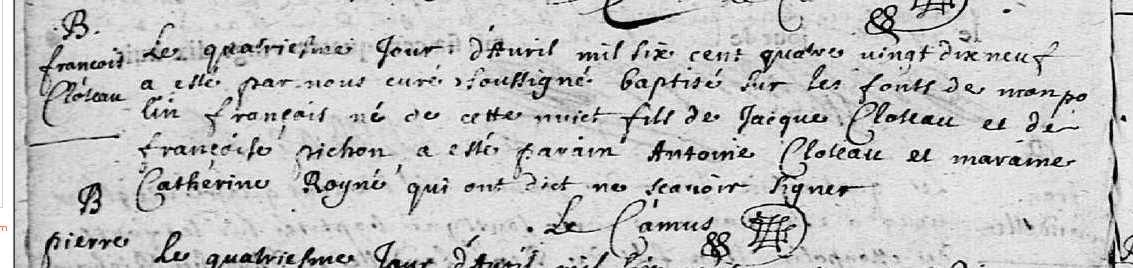 B.
françois
Cloteau
Le quatriesme Jour d'Avril mil six cent quatre vingt dix neuf
a esté par nous curé soussigné baptisé sur les fonts de monpo
lin françois né de cette nuict fils de Jacque Cloteau et de
françoise pichon a esté parain Antoine Cloteau et maraine
Catherine Royné qui ont dict ne scavoir signer
Le Camus
B
pierre
Le quatriesme Jour d'Avril mil